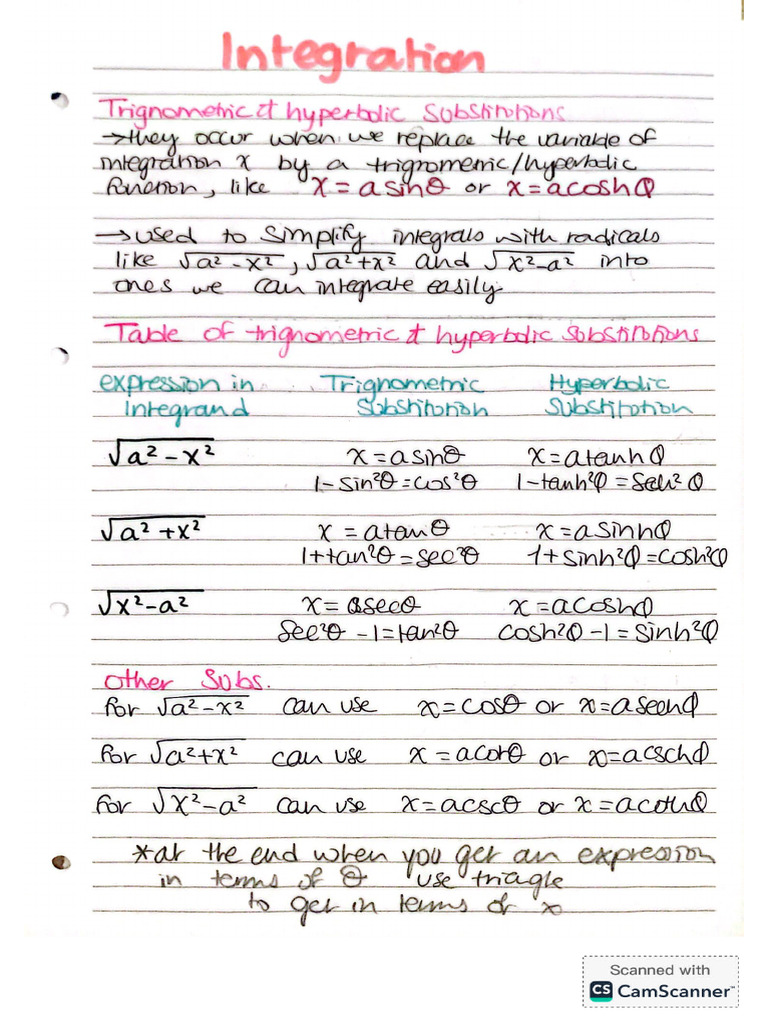 Integration
Trignometric & hyperbolic Substitutions
→they occur when we replace the variable of
integration x by a trignometric/hyperbolic
function, like x = a sinθ or x = a coshφ
→used to simplify integrals with radicals
like √a² - x² , √a² + x² and √x² - a² into
ones we can integrate easily.
Table of trignometric & hyperbolic substitutions
expression in Trignometric Hyperbolic
Integrand Substitution Substitution
√a² - x² x = a sinθ x = a tanhφ
1 - sin²θ = cos²θ 1 - tanh²φ = sech²φ
√a² + x² x = a tanθ x = a sinhφ
1 + tan²θ = sec²θ 1 + sinh²φ = cosh²φ
√x² - a² x = a secθ x = a coshφ
sec²θ - 1 = tan²θ cosh²φ - 1 = sinh²φ
Other Subs.
for √a² - x² can use x = cosθ or x = a sechφ
for √a² + x² can use x = a cotθ or x = a cschφ
for √x² - a² can use x = a cscθ or x = a cothφ
*at the end when you get an expression
in terms of θ use triagle
to get in terms of x
Scanned with
CS CamScanner™